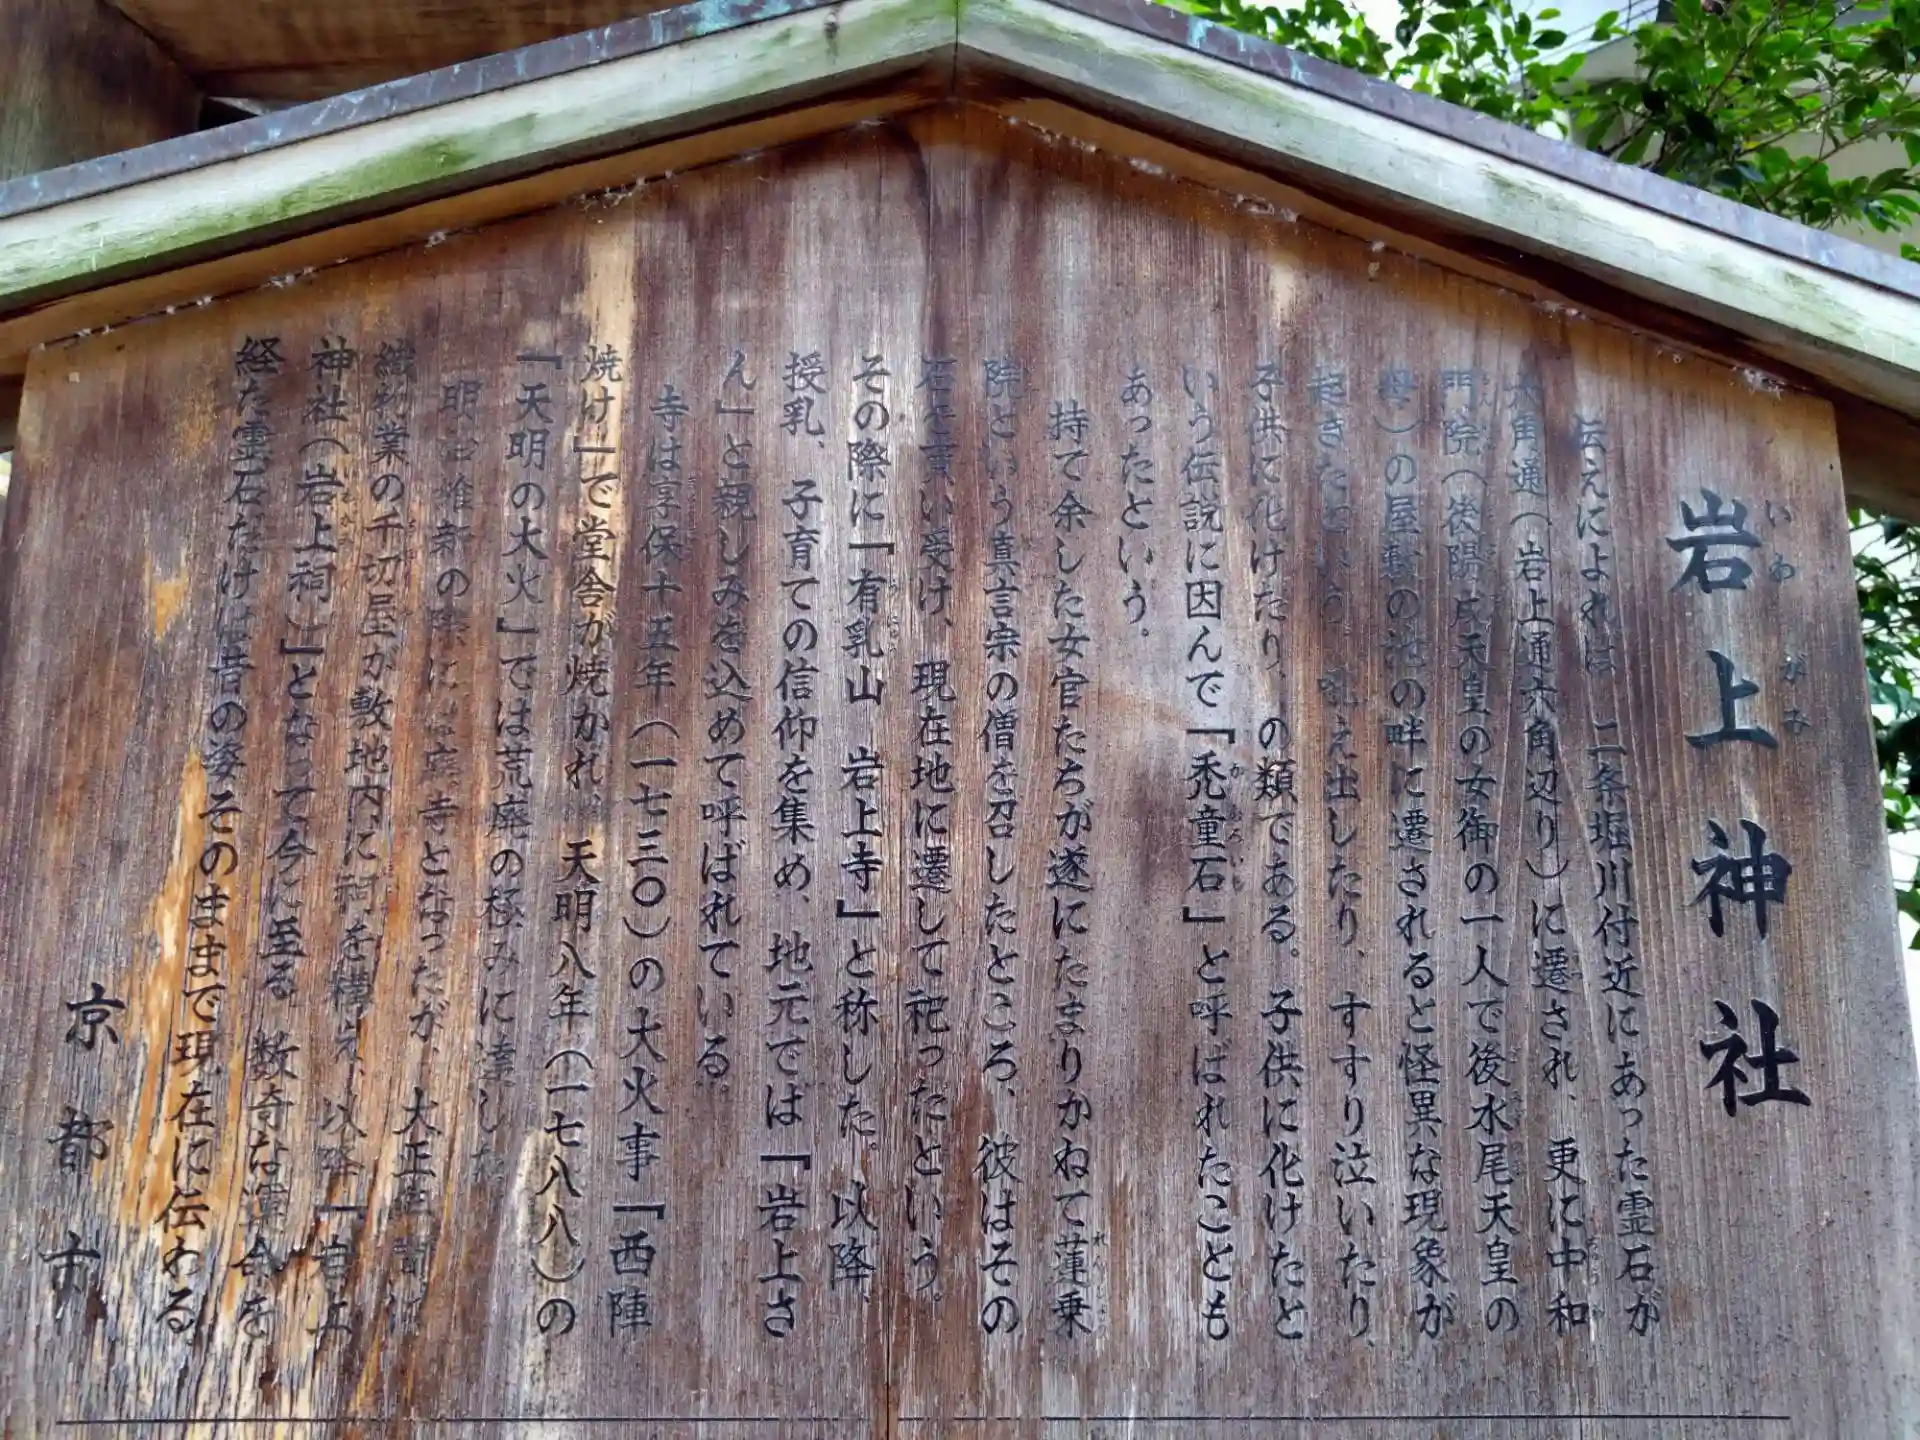 岩上神社
いわ がみ
伝えによれば 二条堀川付近にあった霊石が
六角通(岩上通六角辺り)に遷され、更に中和
門院(後陽成天皇の女御の一人で後水尾天皇の
母)の屋敷の池の畔に遷されると怪異な現象が
起きたという。吼え出したり、すすり泣いたり、
子供に化けたり、の類である。子供に化けたと
いう伝説に因んで『禿童石』と呼ばれたことも
かむろいし
あったという。
持て余した女官たちが遂にたまりかねて蓮乗
院という真言宗の僧を召したところ、彼はその
石を貰い受け、現在地に遷して祀ったという。
その際に『有乳山 岩上寺』と称した。以降、
授乳、子育ての信仰を集め、地元では『岩上さ
ん』と親しみを込めて呼ばれている。
寺は享保十五年(一七三〇)の大火事『西陣
焼け』で堂舎が焼かれ、天明八年(一七八八)の
『天明の大火』では荒廃の極みに達した
明治維新の際には廃寺となったが、大正年間に
織物業の千切屋が敷地内に祠を構え、以降『岩上
神社(岩上祠)』となって今に至る 数奇な運命を
経た霊石だけは昔の姿そのままで現在に伝わる
京都市